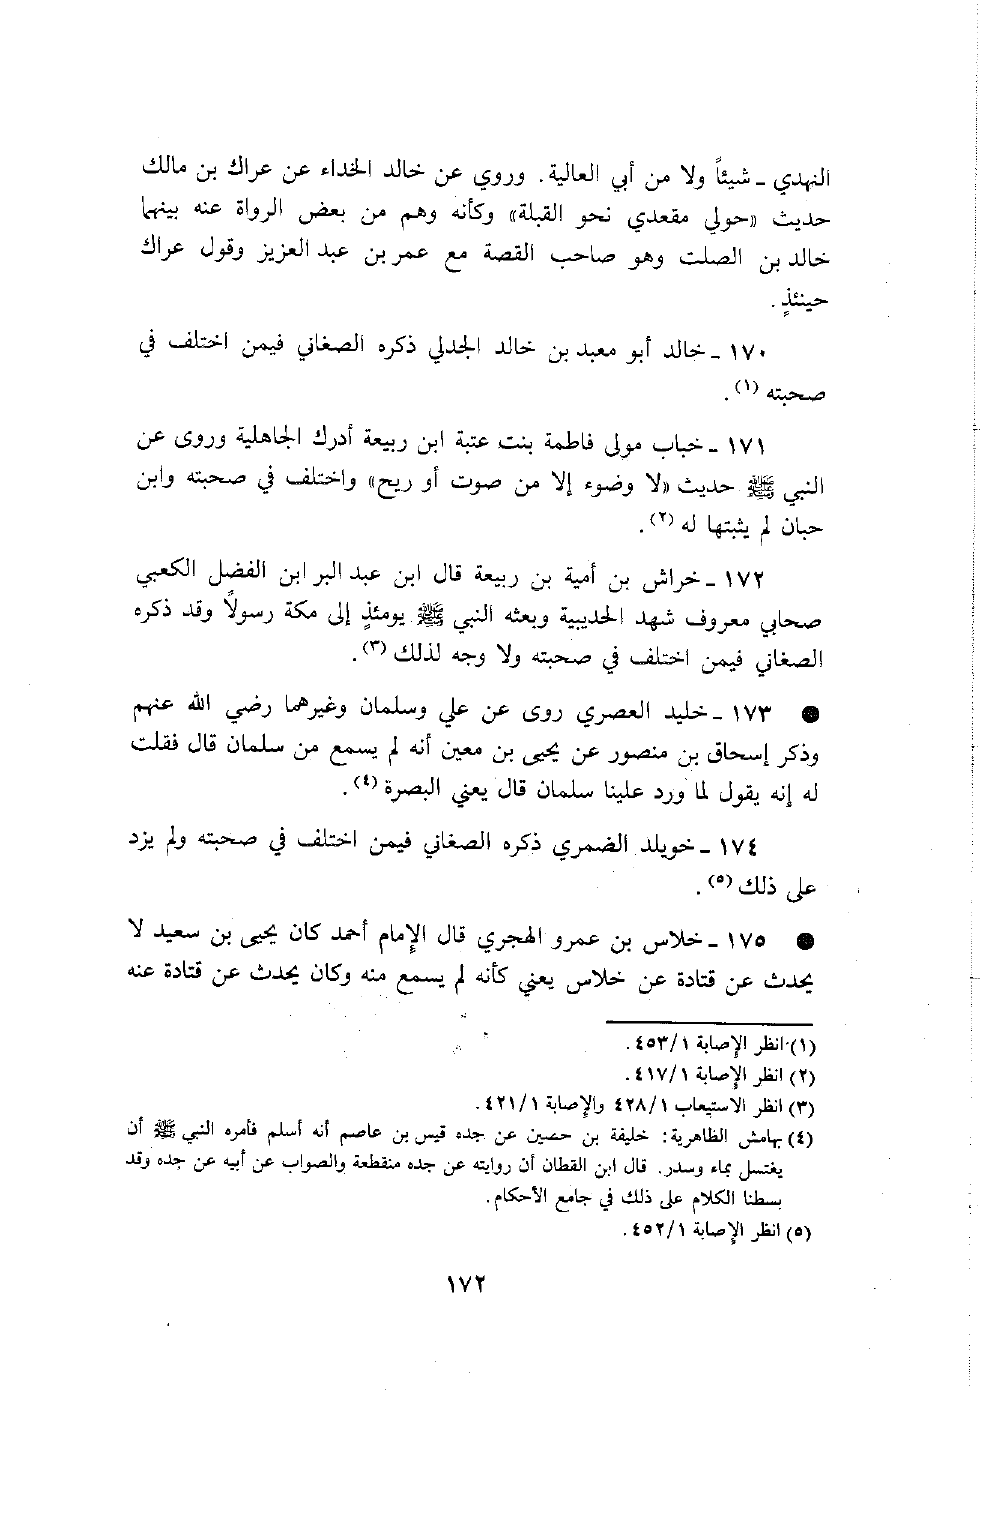 النهدي ـ شيئاً ولا من أبي العالية. وروي عن خالد الحذاء عن عراك بن مالك
حديث «حولي مقعدي نحو القبلة» وكأنه وهم من بعض الرواة عنه بينهما
خالد بن الصلت وهو صاحب القصة مع عمر بن عبد العزيز وقول عراك
حينئذٍ.
١٧٠ ـ خالد أبو معبد بن خالد الجدلي ذكره الصغاني فيمن اختلف في
صحبته (١).
١٧١ ـ خباب مولى فاطمة بنت عتبة ابن ربيعة أدرك الجاهلية وروى عن
النبي ﷺ حديث «لا وضوء إلا من صوت أو ريح» واختلف في صحبته وابن
حبان لم يثبتها له (٢).
١٧٢ ـ خراش بن أمية بن ربيعة قال ابن عبد البر ابن الفضل الكعبي
صحابي معروف شهد الحديبية وبعثه النبي ﷺ يومئذٍ إلى مكة رسولاً وقد ذكره
الصغاني فيمن اختلف في صحبته ولا وجه لذلك (٣).
● ١٧٣ ـ خليد العصري روى عن علي وسلمان وغيرهما رضي الله عنهم
وذكر إسحاق بن منصور عن يحيى بن معين أنه لم يسمع من سلمان قال فقلت
له إنه يقول لما ورد علينا سلمان قال يعني البصرة (٤).
١٧٤ ـ خويلد الضمري ذكره الصغاني فيمن اختلف في صحبته ولم يزد
على ذلك (٥).
● ١٧٥ ـ خلاس بن عمرو الهجري قال الإمام أحمد كان يحيى بن سعيد لا
يحدث عن قتادة عن خلاس يعني كأنه لم يسمع منه وكان يحدث عن قتادة عنه
(١) انظر الإصابة ١/٤٥٣.
(٢) انظر الإصابة ١/٤١٧.
(٣) انظر الاستيعاب ١/٤٢٨ والإصابة ١/٤٢١.
(٤) بهامش الظاهرية: خليفة بن حصين عن جده قيس بن عاصم أنه أسلم فأمره النبي ﷺ أن
يغتسل بماء وسدر. قال ابن القطان أن روايته عن جده منقطعة والصواب عن أبيه عن جده وقد
بسطنا الكلام على ذلك في جامع الأحكام.
(٥) انظر الإصابة ١/٤٥٢.
١٧٢